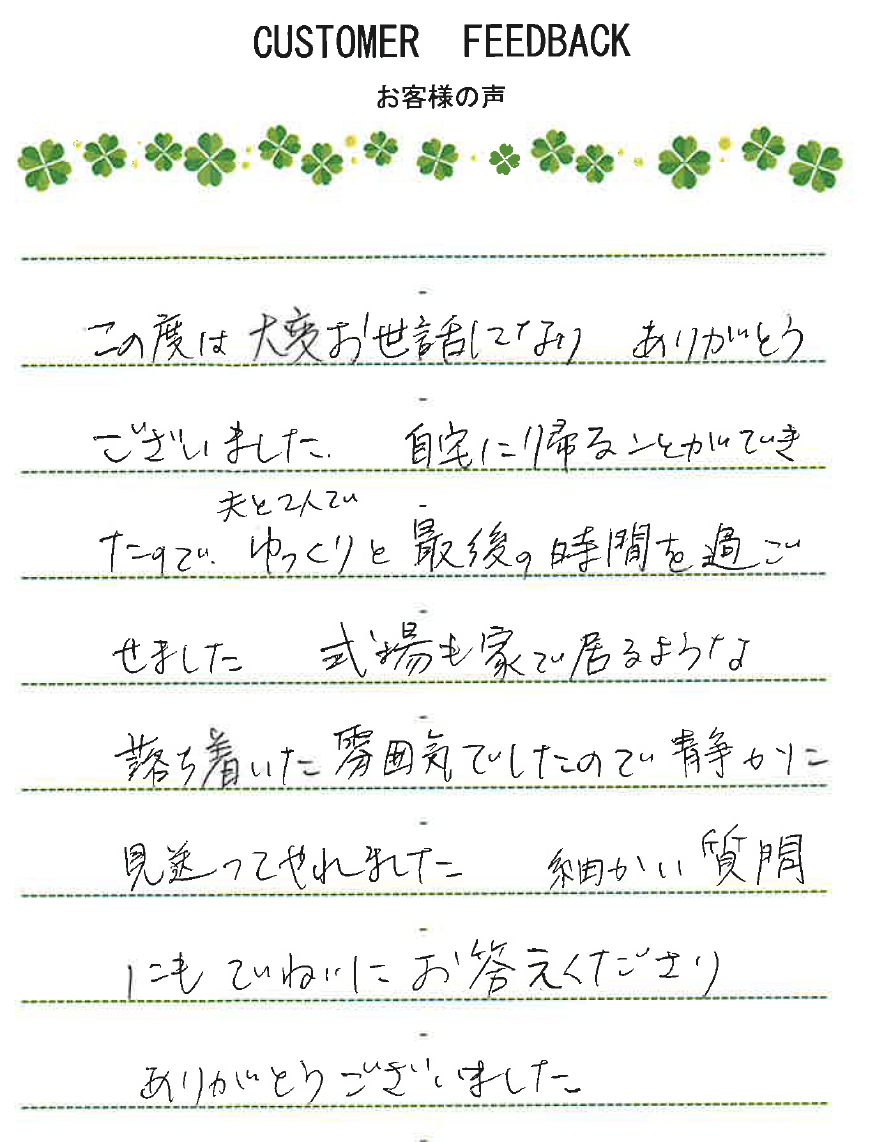 CUSTOMER FEEDBACK
お客様の声
この度は大変お世話になり ありがとう
ございました. 自宅に帰ることができ
夫と2人で
たので、ゆっくりと最後の時間を過ご
せました 式場も家で居るような
落ち着いた雰囲気でしたので静かに
見送ってやれました 細かい質問
にもていねいにお答えくださり
ありがとうございました